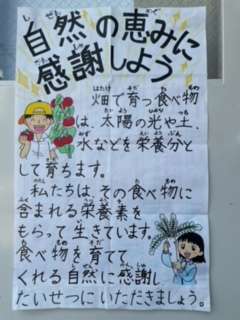 自然の恵みに
感謝しよう
畑で育つ食べ物
は、太陽の光や土、
水などを栄養分と
して育ちます。
私たちは、その食べ物に
含まれる栄養素を
もらって生きています。
食べ物を育てて
くれる自然に感謝し
たいせつにいただきましょう。